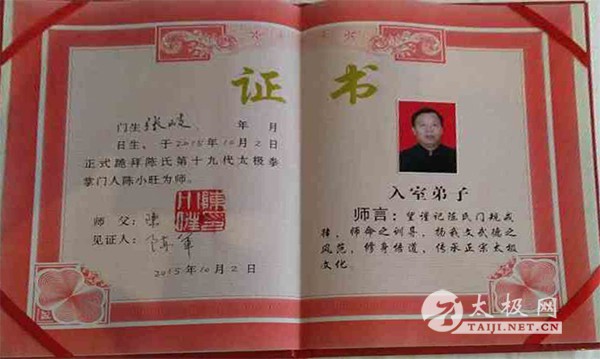 证书
门生张 年 月
日生、于2015年10月2日
正式跪拜陈氏第十九代太极拳
掌门人陈小旺为师。
师 父:陈
见证人:陈军
2015年10月2日
入室弟子
师言:望谨记陈氏门规戒
律,师命之训导,扬我文武德之
风范,修身悟道,传承正宗太极
文化。
太极网
TAIJI.NET.CN